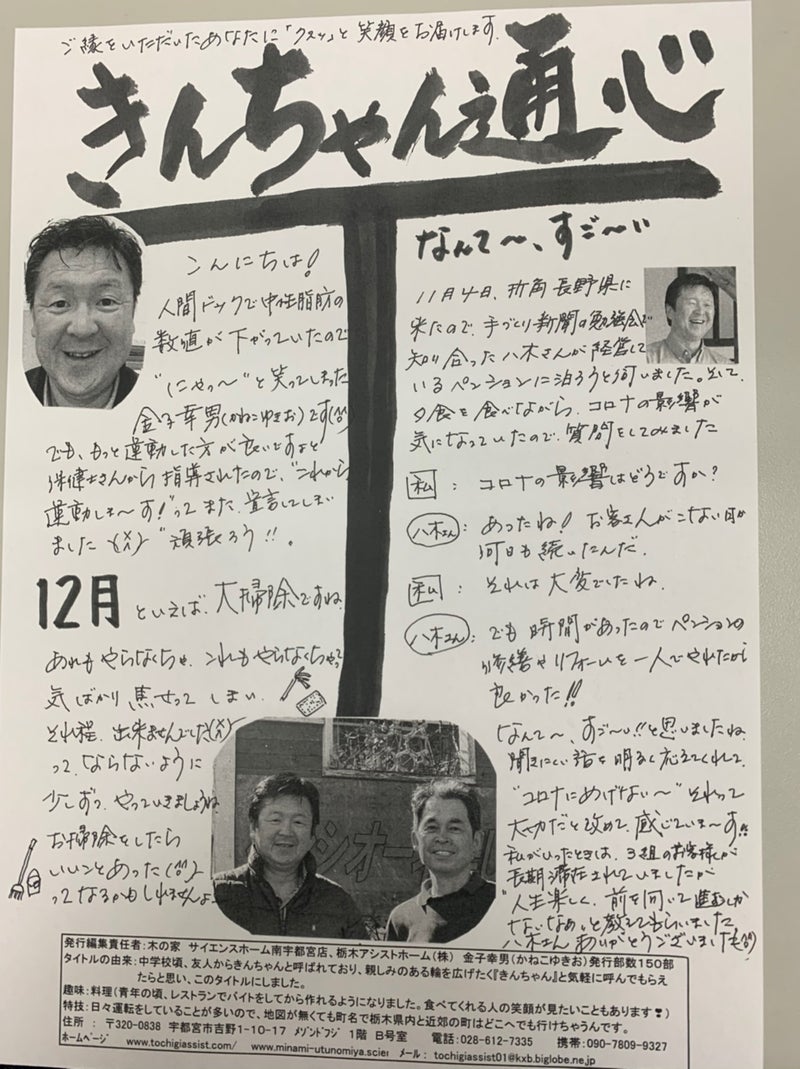 ご縁をいただいたあなたに「クスッ」と笑顔をお届けします。
きんちゃん通心
こんにちは!
人間ドックで中性脂肪の
数値が下がっていたので
"にやっ〜"と笑ってしまった
金子幸男(かねこゆきお)です(^^)
でも、もっと運動した方が良いですよと
保健士さんから指導されたので、"これから
運動しま〜す!"ってまた宣言してしまい
ました "頑張ろう!!。
12月 といえば、大掃除ですね。
あれもやらなくちゃ、これもやらなくちゃって
気ばかり焦ってしまい、
それ程、出来ませんでした
って、ならないように
少しずつ、やっていきましょうね
お掃除をしたら
いいことあった(^^)
ってなるかもしれませんよ
なんて〜、すご〜い
11月4日、折角長野県に
来たので、手づくり新聞の勉強会で
知り合った八木さんが経営して
いるペンションに泊ろうと伺いました。そして、
夕食を食べながら、コロナの影響が
気になっていたので、質問をしてみました
私:コロナの影響はどうですか?
八木さん:あったね! お客さんがこない日が
何日も続いたんだ。
私:それは大変でしたね。
八木さん:でも時間があったのでペンションの
修繕やリフォームを一人でやれたから
良かった!!
なんて〜、すご〜い!!と思いましたね
聞きにくい話を明るく応えてくれて、
"コロナにめげない〜"それって
大切だと改めて、感じていま〜す!!
私がいったときは、3組のお客様が
長期滞在されていましたが
"人生楽しく、前を向いて進むしか
ないなぁ〜と教えてもらいました
八木さんありがとうございました(^^)
シオー
発行編集責任者:木の家 サイエンスホーム南宇都宮店、栃木アシストホーム(株) 金子幸男(かねこゆきお)発行部数150部
タイトルの由来:中学校頃、友人からきんちゃんと呼ばれており、親しみのある輪を広げたく『きんちゃん』と気軽に呼んでもらえ
たらと思い、このタイトルにしました。
趣味:料理(青年の頃、レストランでバイトをしてから作れるようになりました。食べてくれる人の笑顔が見たいこともあります❢)
特技:日々運転をしていることが多いので、地図が無くても町名で栃木県内と近郊の町はどこへでも行けちゃうんです。
住所 : 〒320-0838 宇都宮市吉野1-10-17 メゾンドフジ 1階 B号室 電話:028-612-7335 携帯:090-7809-9327
ホームページ www.tochigiassist.com/ www.minami-utunomiya.scien メール: tochigiassist01@kxb.biglobe.ne.jp